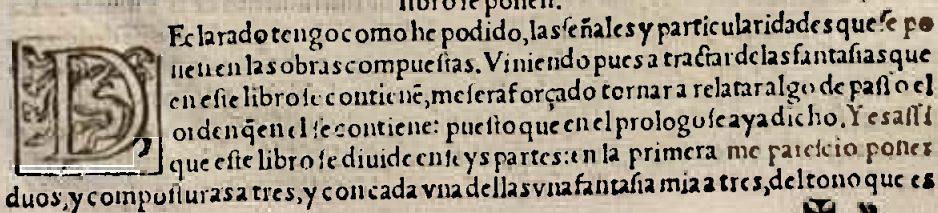 libro se ponen.
DEclarado tengo como he podido, las señales y particularidades que se po
nen en las obras compuestas. Viniendo pues a tractar de las fantasias que
en este libro se contienẽ, me sera forçado tornar a relatar algo de passo el
orden q̃ en el se contiene: puesto que en el prologo se aya dicho. Y es assi
que este libro se diuide en seys partes: en la primera me parescio poner
duos, y composturas a tres, y con cada vna dellas vna fantasia mia a tres, del tono que es